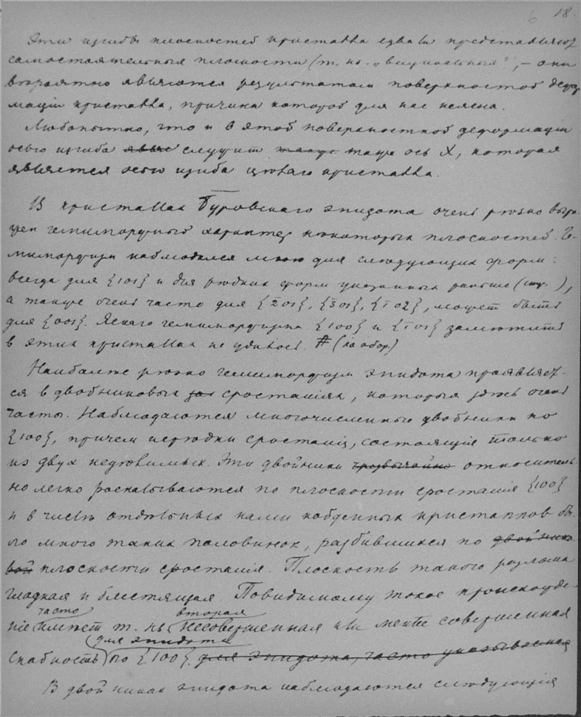 18
6
Эти изгибы плоскостей кристалла едва ли представляют
самостоятельныя плоскости (т. н. „вицинальныя“), – они
вероятно являются результатом поверхностной дефор-
мации кристалла, причина которой для нас неясна.
Любопытно, что и в этой поверхностной деформации
осью изгиба служит также ось X, которая
является осью изгиба целого кристалла.
В кристаллах Буровского эпидота очень резко выра-
жен гемиморфный характер некоторых плоскостей. Ге-
мимморфизм наблюдался мною для следующих форм:
всегда для {101} и для редких форм указанных раньше (стр. ),
а также очень часто для {201}, {301}, {102}, может быть
для {001}. Яснаго гемиморфизма {100} и {101} заметить
в этих кристаллах не удалось. # (на обор.)
Наиболее резко гемиморфизм эпидота проявляет-
ся в двойниковых сростаниях, которыя здесь очень
часты. Наблюдаются многочисленные двойники по
{100}, причем нередки сростания, состоящия только
из двух неделимых. Эти двойники чрезвычайно относитель-
но легко раскалываются по плоскости сростания {100}
и в числе отдельных нами найденных кристаллов бы-
ло много таких половинок, разбившихся по двойнико-
вой плоскости сростания. Плоскость такого разлома
гладкая и блестящая. Повидимому такое происхожде-
ние часто имеет т. н. вторая несовершенная или менее совершенная
для эпидота
спайность по {100} для эпидота, часто указываемая
В двойниках эпидота наблюдаются следующия